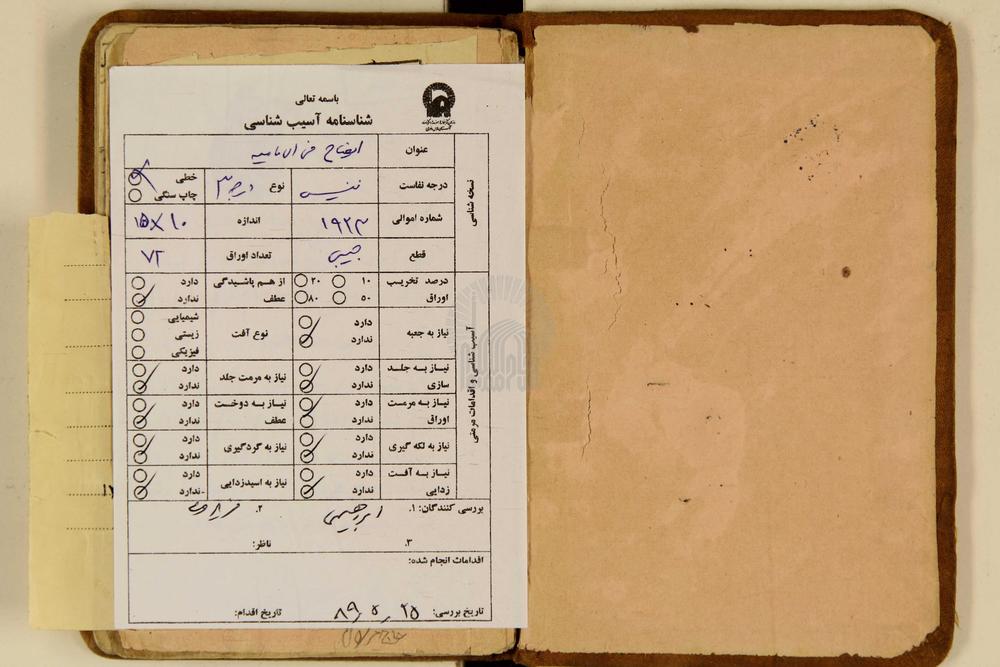 باسمه تعالی
شناسنامه آسیب شناسی
نسخه شناسی
عنوان
درجه نفاست نفیس نوع درجه ۳ خطی
چاپ سنگی
شماره اموالی ۱۹۲۳ اندازه ۱۰×۱۵
قطع جیبی تعداد اوراق ۷۲
آسیب شناسی و اقدامات مرمتی
درصد تخریب ۱۰ ۲۰ از هم پاشیدگی دارد
اوراق ۵۰ ۸۰ عطف ندارد
نیاز به جعبه دارد ندارد نوع آفت شیمیایی
زیستی
فیزیکی
نیاز به جلد دارد نیاز به مرمت جلد دارد
سازی ندارد ندارد
نیاز به مرمت دارد نیاز به دوخت دارد
اوراق ندارد عطف ندارد
نیاز به لکه گیری دارد ندارد نیاز به گردگیری دارد ندارد
نیاز به آفت دارد نیاز به اسیدزدایی دارد
زدایی ندارد ندارد
بررسی کنندگان: ۱. ابراهیمی ۲.
۳. ناظر:
اقدامات انجام شده:
تاریخ بررسی: ۲۵ ر ۵ ر ۸۹ تاریخ اقدام: